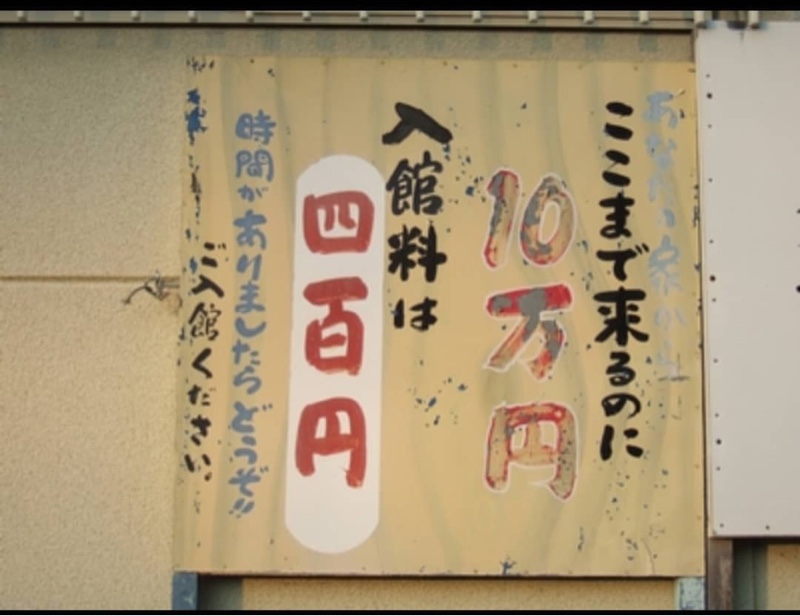 あなたの家から
ここまで来るのに
10万円
入館料は
四百円
時間がありましたらどうぞ!!
ご入館ください。